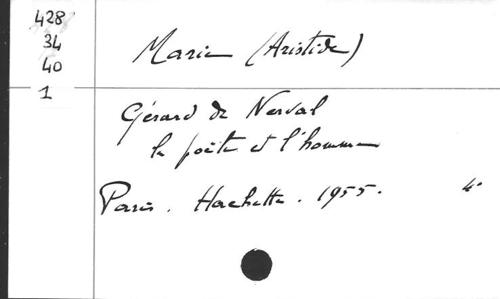 428
34
40
1
Marie (Aristide)
Gérard de Nerval
le poète et l'homme
Paris. Hachette. 1955. 4°